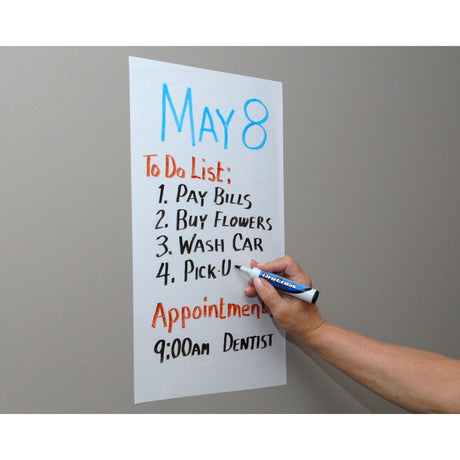 MAY 8
TO DO LIST:
1. PAY BILLS
2. BUY FLOWERS
3. WASH CAR
4. PICK-U
Appointment
9:00AM DENTIST